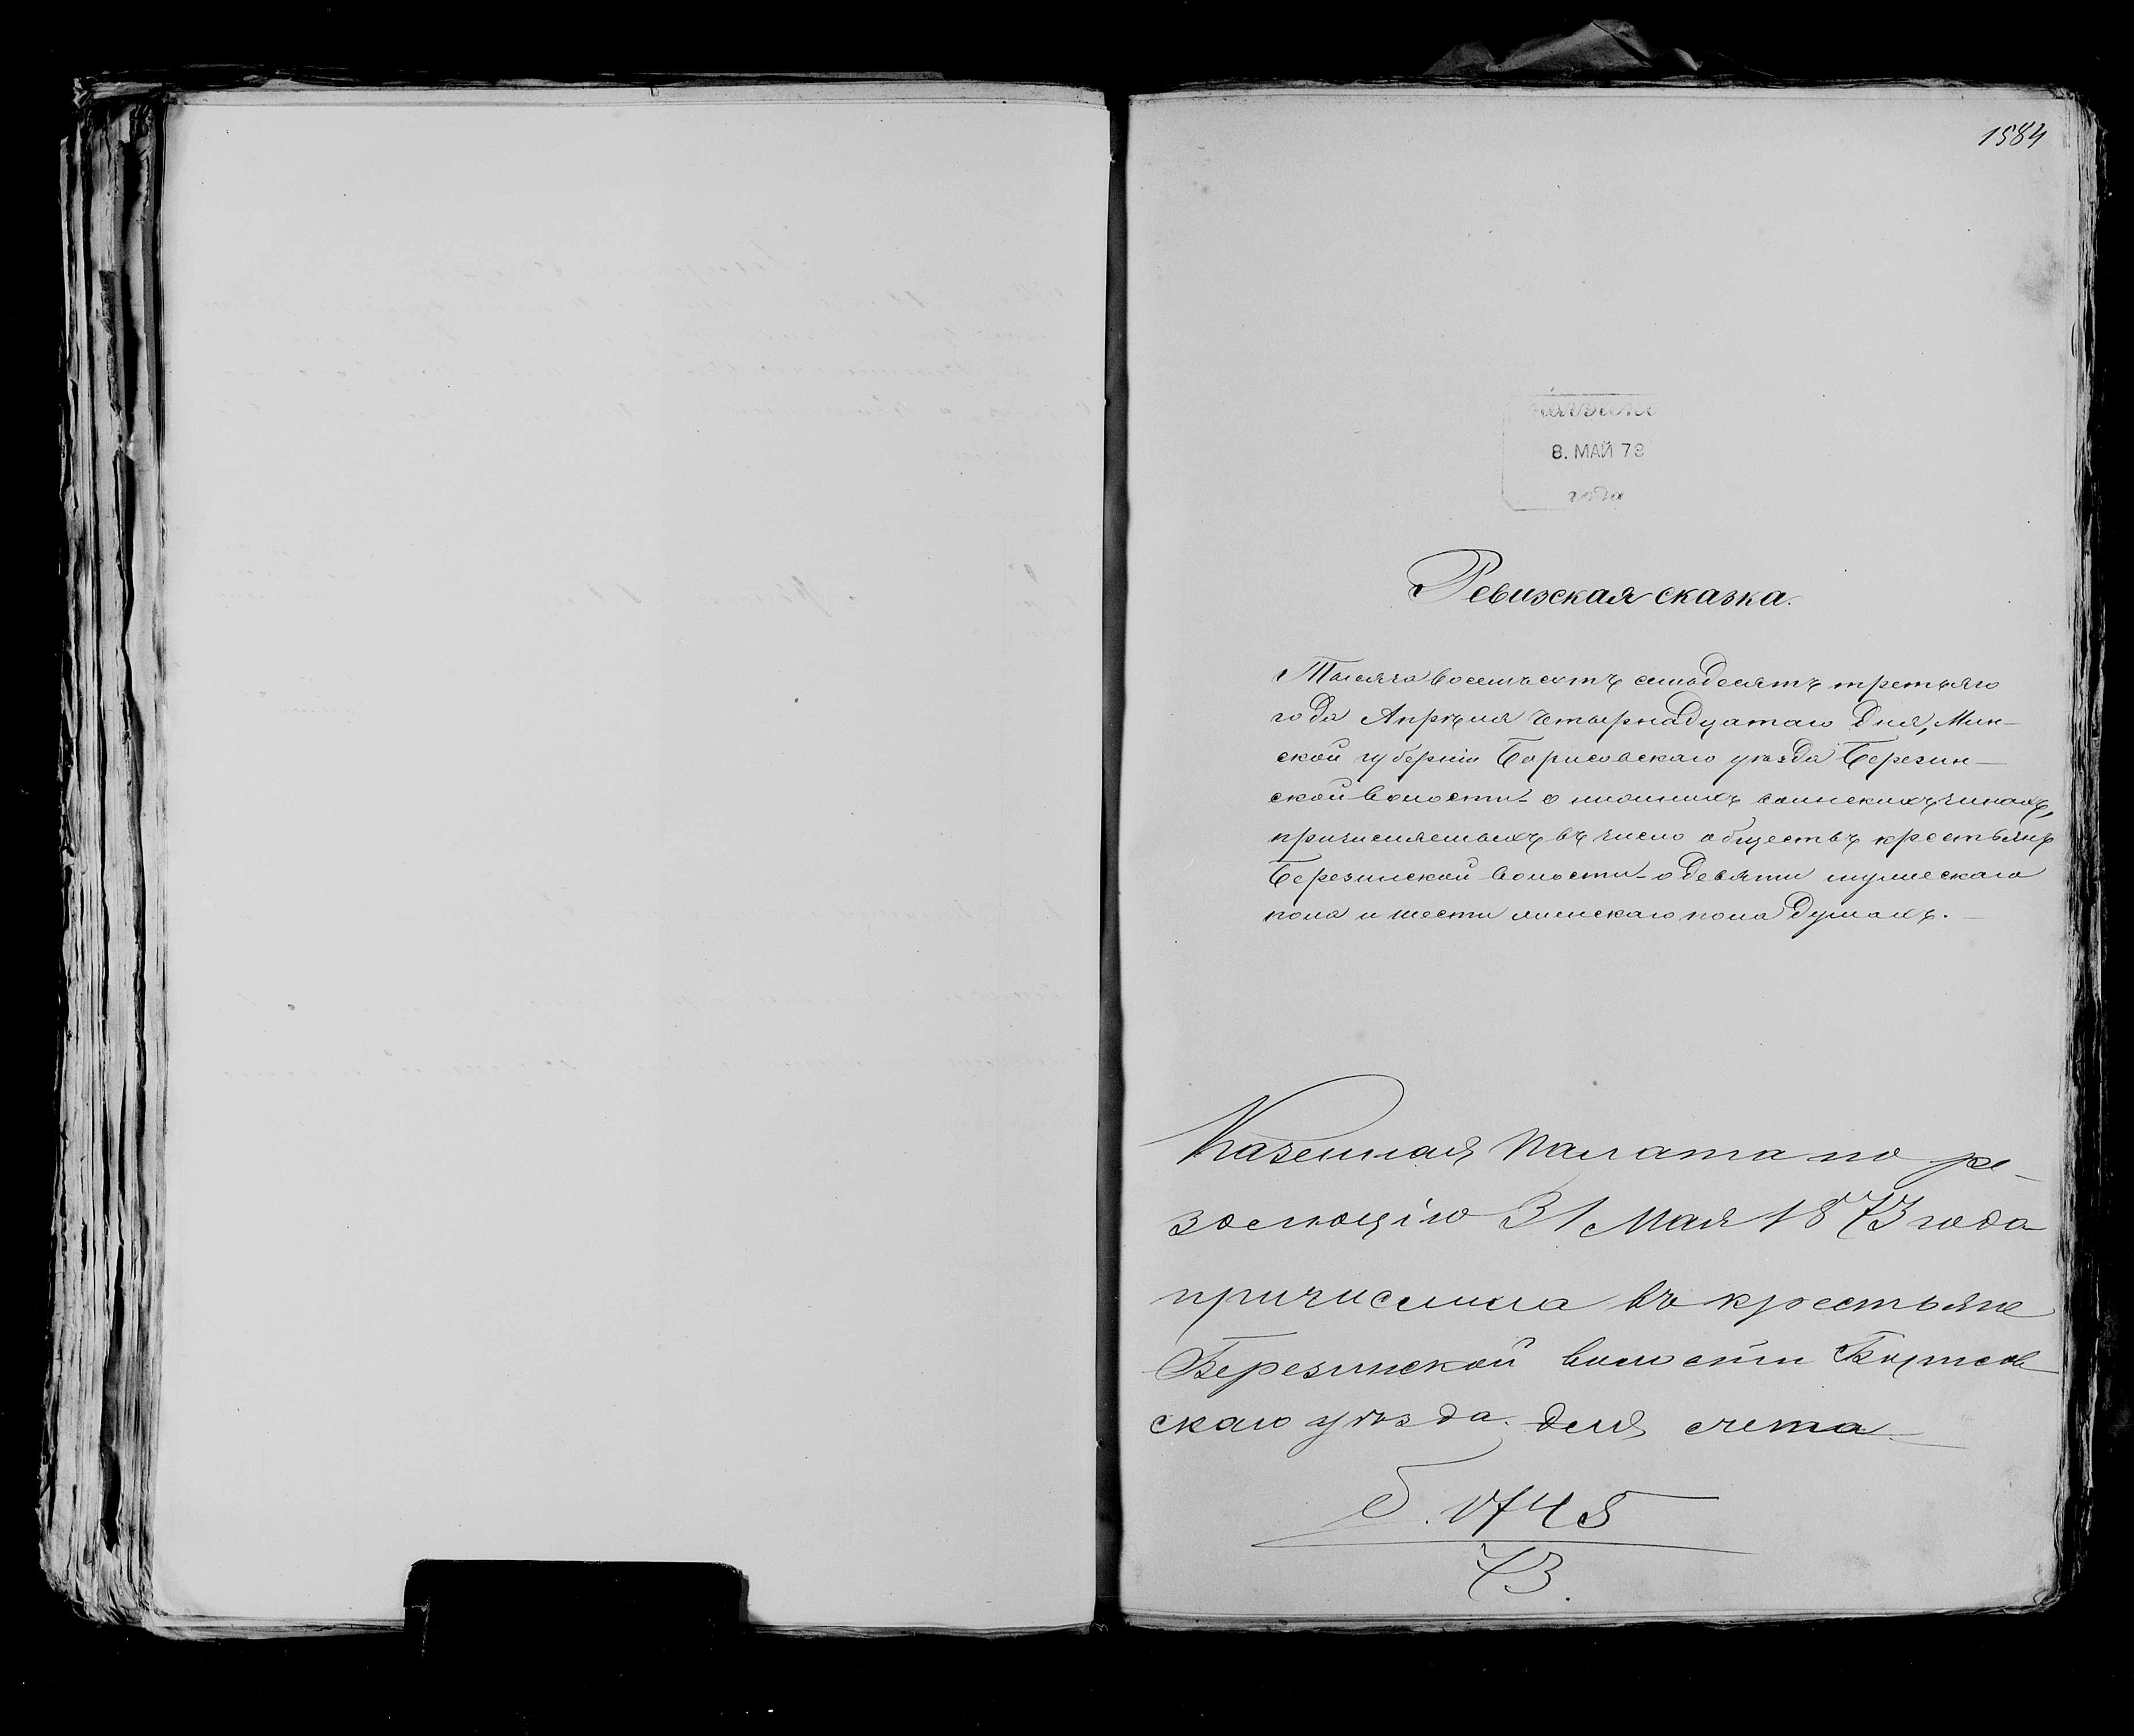 1584
8. МАЙ 73
года
Ревизская сказка.
Тысяча восемьсотъ семьдесятъ третьяго
года Апрѣля четырнадцатаго дня, Мин-
ской губерніи Борисовскаго уѣзда Березин-
ской волости о нижнихъ воинскихъ чинахъ,
причисляемыхъ въ число обществъ крестьянъ
Березинской волости о девяти мужескаго
пола и шести женскаго пола душахъ.
Казенная Палата по ре-
золюціи 31 Мая 1873 года
причислила въ крестьяне
Березинской волости Борисов
скаго уѣзда. для счета
б. 1745
73.